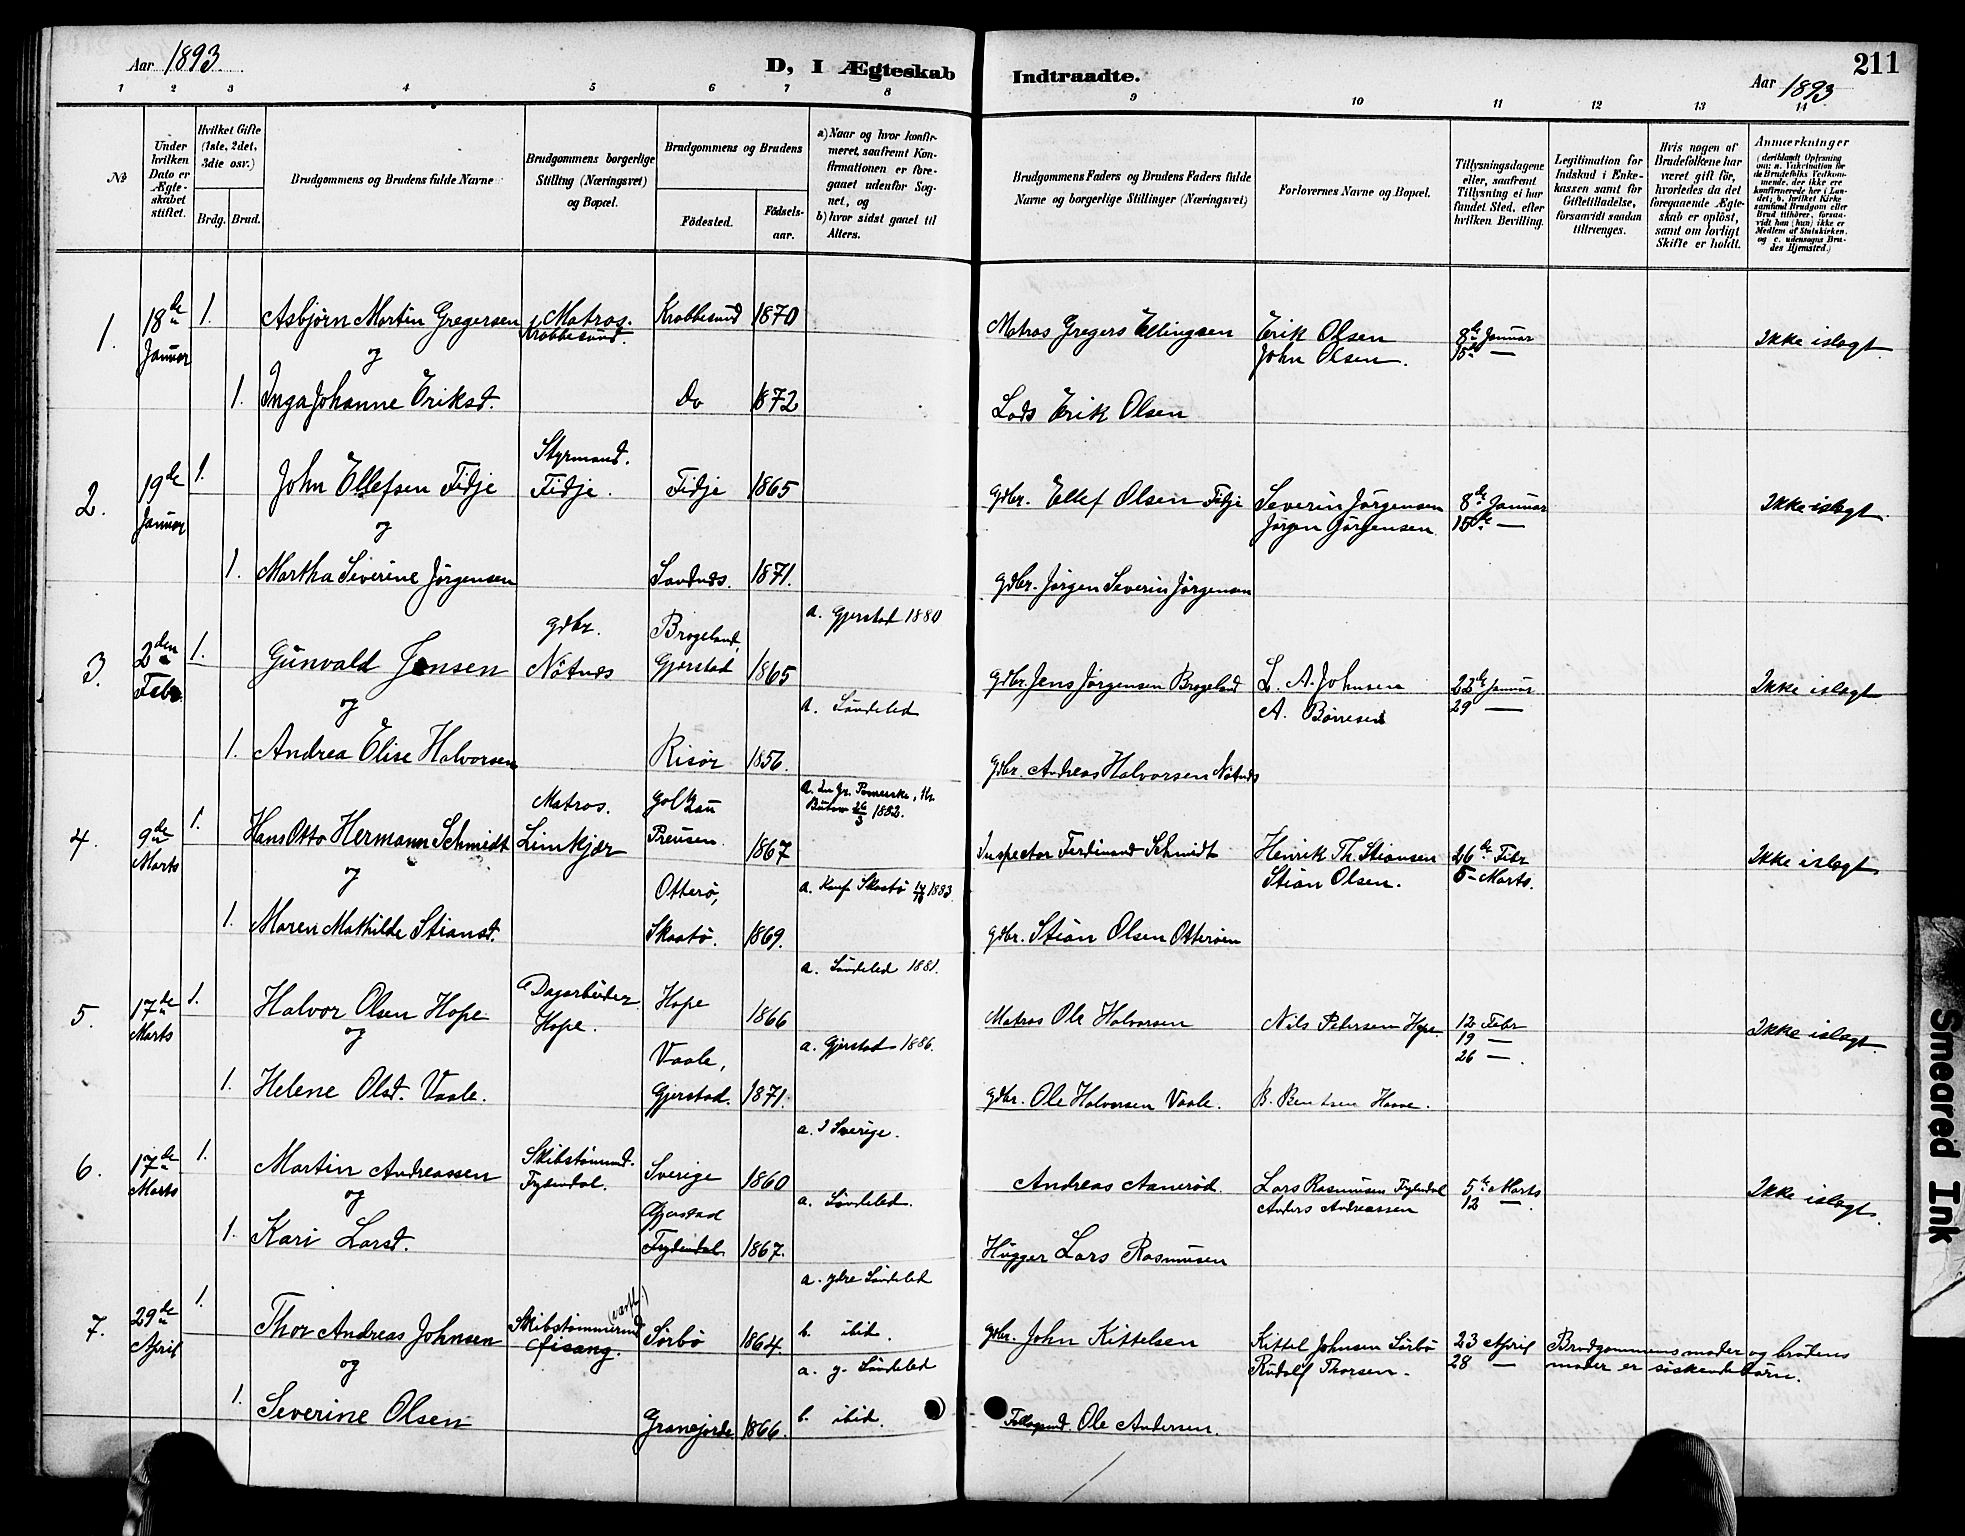 Aar 1893
D, I Ægteskab Indtraadte.
Aar 1893
211
1 2 3 4 5 6 7 8 9 10 11 12 13 14
No
Under hvilken Dato er Ægteskabet stiftet.
Hvilket Gifte (1ste, 2det, 3die osv.)
Brdg. Brud.
Brudgommens og Brudens fulde Navne
Brudgommens borgerlige Stilling (Næringsvei) og Bopæl.
Brudgommens og Brudens
Fødested.
Fødselsaar.
a) Naar og hvor konfirmeret, saafremt Konfirmationen er foregaaet udenfor Sognet, og
b) hvor sidst gaaet til Alters.
Brudgommens Faders og Brudens Faders fulde Navne og borgerlige Stillinger (Næringsvei)
Forlovernes Navne og Bopæl.
Tillysningsdagene eller, saafremt Tillysning ei har fundet Sted, efter hvilken Bevilling.
Legitimation for Indskud i Enkekassen samt for Giftetilladelse, forsaavidt saadan tiltrænges.
Hvis nogen af Brudefolkene har været gift før, hvorledes da det foregaaende Ægteskab er opløst, samt om lovligt Skifte er holdt.
Anmærkninger
(deriblandt Oplysning om: a. Vakcination for de Brudefolks Vedkommende, der ikke ere konfirmerede her i Landet; b. hvilket Kirkesamfund Brudgom eller Brud tilhører, forsaavidt han (hun) ikke er Medlem af Statskirken, og c. udensogns Brudes Hjemsted.)
1. 18de Januar 1. Asbjørn Martin Gregersen Matros. Krabbesund. Krabbesund 1870 Matros Gregers Ellingsen Erik Olsen John Olsen. 8de Januar 15de — Ikke islægt.
og
1. Inga Johanne Eriksd. Do 1872 Lods Erik Olsen
2. 19de Januar 1. John Ellefsen Fidje Styrmand. Fidje. Fidje 1865 Gdbr. Ellef Olsen Fidje Severin Jørgensen Jørgen Jørgensen 8de Januar 15de — Ikke islægt.
og
1. Martha Siverine Jørgensen Sandnæs. 1871. Gdbr. Jørgen Severin Jørgensen
3. 2den Febr. 1. Gunvald Jensen Gdbr. Nötnæs Brogeland, Gjerstad 1865 a. Gjerstad 1880 Gdbr. Jens Jørgensen Brogeland L. A. Johnsen A. Börresen 22de Januar 29 — Ikke islægt.
og
1. Andrea Elise Halvorsen Risör 1856. a. Söndeled Gdbr. Andreas Halvorsen Nötnæs
4. 9de Marts 1. Hans Otto Hermann Schmidt Matros. Limkjær Preusen. 1867 26/3 1882. Inspector Ferdinand Schmidt Henrik Th. Stiansen Stian Olsen. 26de Febr 5 — Marts. Ikke islægt
og
1. Maren Mathilde Stiansd. Otterö, Skaatö. 1869. a. Konf Skaatö 1883. Gdbr. Stian Olsen Otteröen
5. 17de Marts 1. Halvor Olsen Hope Dagarbeider Hope. Hope 1866 a. Söndeled 1881. Matros Ole Halvorsen Nils Petersen Hope 12 Febr 19 — 26 —. Ikke islægt.
og
1. Helene Olsd. Vaale. Vaale, Gjerstad. 1871. a. Gjerstad 1886. Gdbr. Ole Halvorsen Vaale. B. Bentsen
6. 17de Marts 1. Martin Andreassen Skibstömmd. Frydendal. Sverige 1860 a. I Sverige. Andreas Aanerød. Lars Rasmusen Frydendal Anders Andreassen 5te Marts 12 —. Ikke islægt.
og
1. Kari Larsd. Gjerstad Frydendal 1867. a. Söndeled. Hugger Lars Rasmusen
7. 29de April 1. Thor Andreas Johnsen Skibstömmermd (værft.) Sörbö 1864. a. ydre Söndeled b. ibid. Gdbr. John Kittelsen Kittel Johnsen Sörbö Rudolf Thorsen. 23 April 28 — Brudgommens moder og brudens moder er söskendebörn.
og
1. Severine Olsen Granefjorde 1866. a. y. Söndeled b. ibid. Ole Andersen.
Smeared Ink